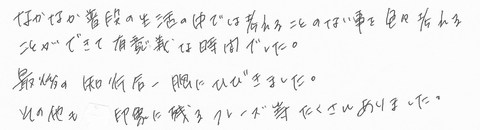 なかなか普段の生活の中では考えることのない事を色々考える
ことができて有意義な時間でした。
最後の 一 胸にひびきました。
その他も 印象に残るフレーズ等たくさんありました。